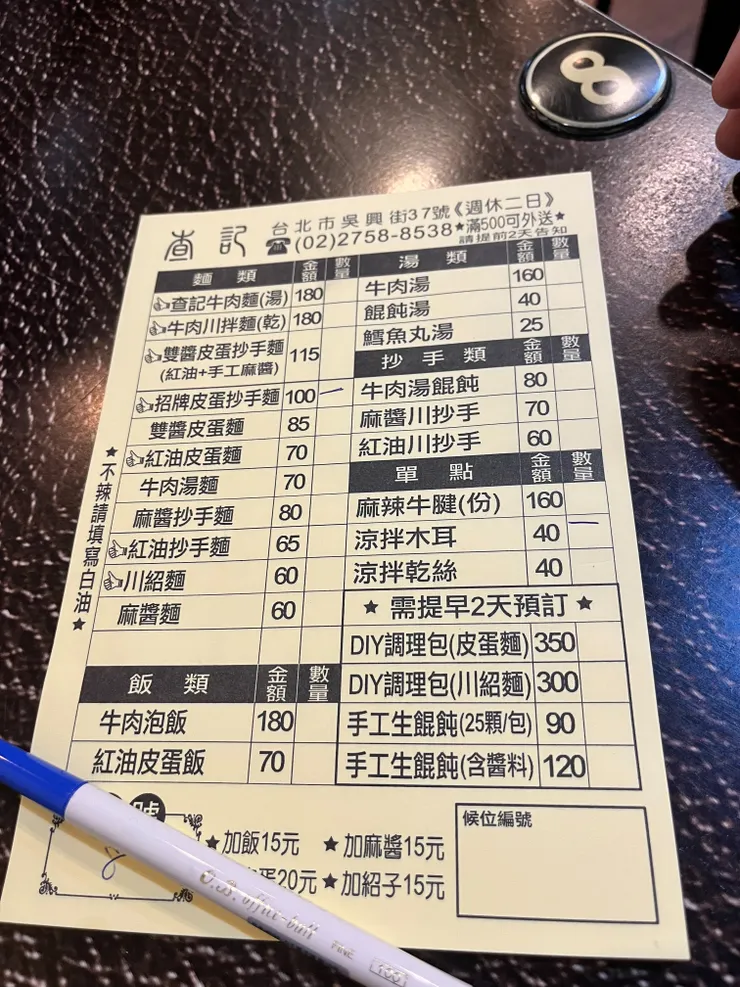 8
查記
台北市吳興街37號《週休二日》
☎(02)2758-8538 ★滿500可外送★
請提前2天告知
麵類 金額 數量
查記牛肉麵(湯) 180
牛肉川拌麵(乾) 180
雙醬皮蛋抄手麵 115
(紅油+手工麻醬)
招牌皮蛋抄手麵 100 一
雙醬皮蛋麵 85
紅油皮蛋麵 70
牛肉湯麵 70
麻醬抄手麵 80
紅油抄手麵 65
川紹麵 60
麻醬麵 60
★不辣請填寫白油★
飯類 金額 數量
牛肉泡飯 180
紅油皮蛋飯 70
湯類 金額 數量
牛肉湯 160
餛飩湯 40
鱈魚丸湯 25
抄手類 金額 數量
牛肉湯餛飩 80
麻醬川抄手 70
紅油川抄手 60
單點 金額 數量
麻辣牛腱(份) 160
涼拌木耳 40 一
涼拌乾絲 40
★需提早2天預訂★
DIY調理包(皮蛋麵) 350
DIY調理包(川紹麵) 300
手工生餛飩(25顆/包) 90
手工生餛飩(含醬料) 120
號
8
★加飯15元 ★加麻醬15元
蛋20元 ★加紹子15元
候位編號
O.B. office-ball
FINE
100